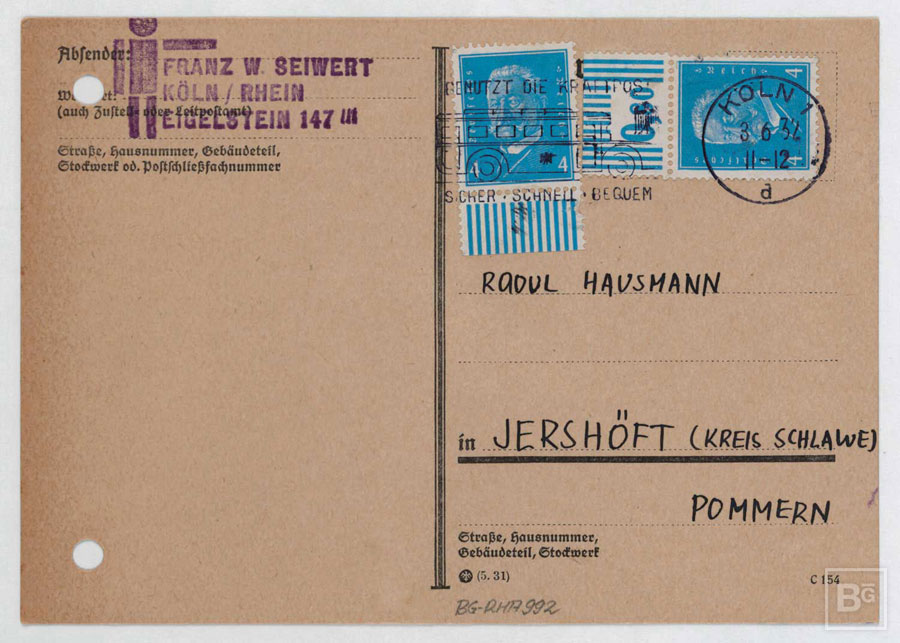 Absender:
FRANZ W. SEIWERT
KÖLN / RHEIN
EIGELSTEIN 147 III
(auch Zustell- oder Leitpostamt)
Straße, Hausnummer, Gebäudeteil,
Stockwerk od. Postschließfachnummer
BENUTZT DIE KRAFTPOST
SICHER · SCHNELL · BEQUEM
4 4
Reich 4
4
KÖLN 1
8.6.32
11-12
a
RAOUL HAUSMANN
in JERSHÖFT (KREIS SCHLAWE)
POMMERN
Straße, Hausnummer,
Gebäudeteil, Stockwerk
(5. 31)
C 154
BG-RHA 992
BG